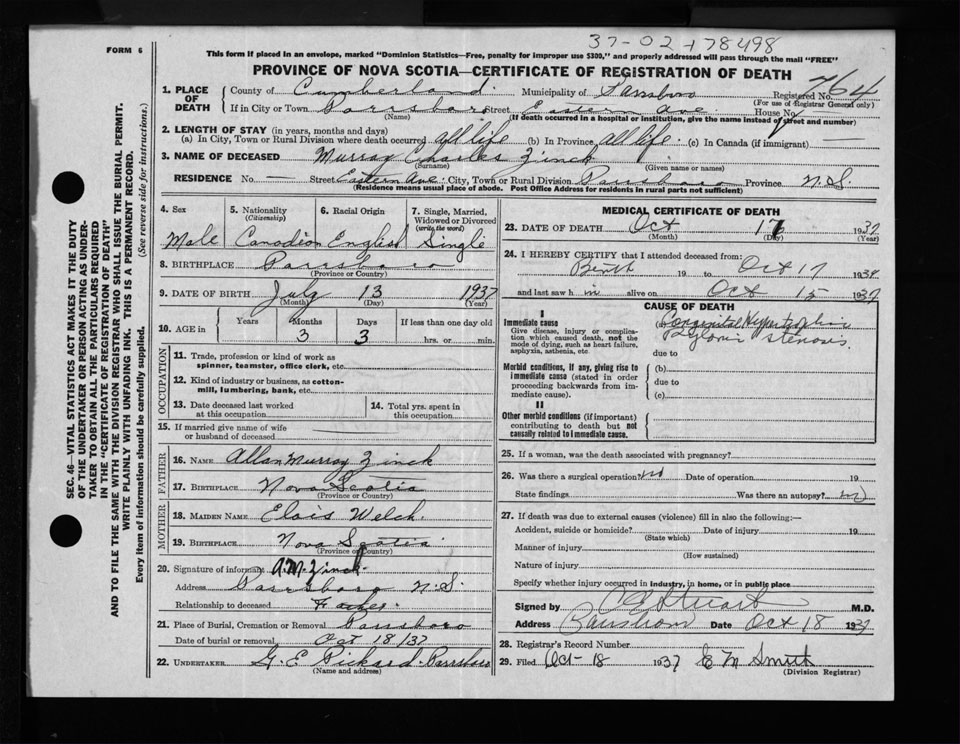 37-02-178498
FORM 6
This form if placed in an envelope, marked "Dominion Statistics—Free, penalty for improper use $300," and properly addressed will pass through the mail "FREE"
PROVINCE OF NOVA SCOTIA—CERTIFICATE OF REGISTRATION OF DEATH
1. PLACE OF DEATH
County of Cumberland. Municipality of Parrsboro Registered No. 764
(For use of Registrar General only)
If in City or Town Parrsboro Street Eastern Ave. House No.
(Name) (If death occurred in a hospital or institution, give the name instead of street and number)
2. LENGTH OF STAY (in years, months and days)
(a) In City, Town or Rural Division where death occurred all life (b) In Province all life. (c) In Canada (if immigrant) —
3. NAME OF DECEASED Murray Charles Zinck
(Surname) (Given name or names)
RESIDENCE No. — Street Eastern Ave. City, Town or Rural Division Parrsboro Province N.S.
(Residence means usual place of abode. Post Office Address for residents in rural parts not sufficient)
4. Sex
Male
5. Nationality
(Citizenship)
Canadian
6. Racial Origin
English
7. Single, Married, Widowed or Divorced
(write the word)
Single
8. BIRTHPLACE Parrsboro
(Province or Country)
9. DATE OF BIRTH July 13 1937
(Month) (Day) (Year)
10. AGE in
Years
Months
3
Days
3
If less than one day old
hrs. or min.
OCCUPATION
11. Trade, profession or kind of work as spinner, teamster, office clerk, etc.
12. Kind of industry or business, as cotton-mill, lumbering, bank, etc.
13. Date deceased last worked at this occupation
14. Total yrs. spent in this occupation
15. If married give name of wife or husband of deceased
FATHER
16. NAME Allan Murray Zinck
17. BIRTHPLACE Nova Scotia
(Province or Country)
MOTHER
18. MAIDEN NAME Elois Welch.
19. BIRTHPLACE Nova Scotia
(Province or Country)
20. Signature of informant A.M. Zinck.
Address Parrsboro N.S.
Relationship to deceased Father.
21. Place of Burial, Cremation or Removal Parrsboro
Date of burial or removal Oct 18/37
22. UNDERTAKER G. E. Pickard. Parrsboro
(Name and address)
MEDICAL CERTIFICATE OF DEATH
23. DATE OF DEATH Oct 17 1937
(Month) (Day) (Year)
24. I HEREBY CERTIFY that I attended deceased from:
Birth 19 to Oct 17 1937
and last saw h im alive on Oct 15 1937
CAUSE OF DEATH
I
Immediate cause
Give disease, injury or complication which caused death, not the mode of dying, such as heart failure, asphyxia, asthenia, etc.
(a) Congenital Hypertrophic
Pyloric stenosis.
due to
Morbid conditions, if any, giving rise to immediate cause (stated in order proceeding backwards from immediate cause).
(b)
due to
(c)
II
Other morbid conditions (if important) contributing to death but not causally related to immediate cause.
25. If a woman, was the death associated with pregnancy?
26. Was there a surgical operation? no Date of operation 19
State findings Was there an autopsy? no
27. If death was due to external causes (violence) fill in also the following:—
Accident, suicide or homicide? Date of injury 19
(State which)
Manner of injury
(How sustained)
Nature of injury
Specify whether injury occurred in industry, in home, or in public place
Signed by C A Stuart M.D.
Address Parrsboro Date Oct 18 1937
28. Registrar's Record Number
29. Filed Oct-18 1937 E M Smith
(Division Registrar)
SEC. 46—VITAL STATISTICS ACT MAKES IT THE DUTY
OF THE UNDERTAKER OR PERSON ACTING AS UNDER-
TAKER TO OBTAIN ALL THE PARTICULARS REQUIRED
IN THE "CERTIFICATE OF REGISTRATION OF DEATH"
AND TO FILE THE SAME WITH THE DIVISION REGISTRAR WHO SHALL ISSUE THE BURIAL PERMIT.
WRITE PLAINLY WITH UNFADING INK. THIS IS A PERMANENT RECORD.
Every item of information should be carefully supplied. (See reverse side for instructions.)